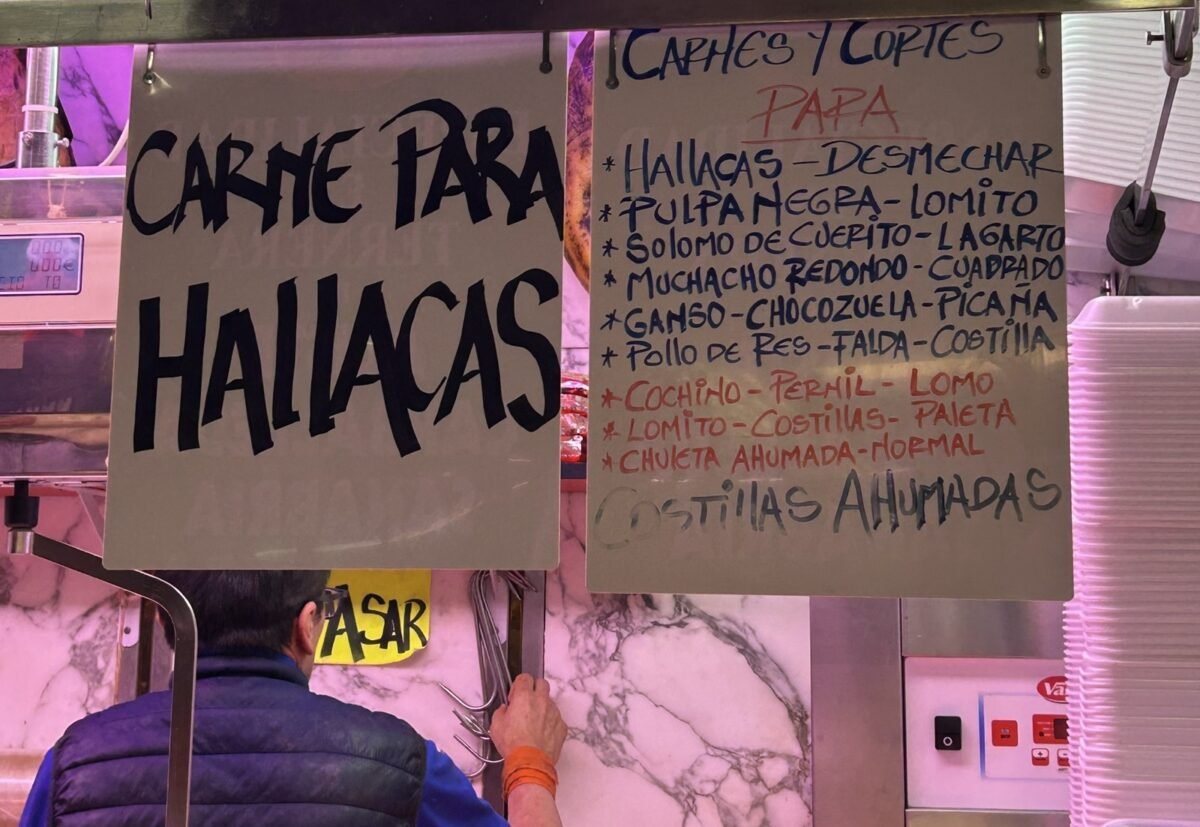 CARNE PARA
HALLACAS
CARNES Y CORTES
PAPA
* HALLACAS - DESMECHAR
* PULPA NEGRA - LOMITO
* SOLOMO DE CUERITO - LAGARTO
* MUCHACHO REDONDO - CUADRADO
* GANSO - CHOCOZUELA - PICAÑA
* POLLO DE RES - FALDA - COSTILLA
* COCHINO - PERNIL - LOMO
* LOMITO - COSTILLAS - PALETA
* CHULETA AHUMADA - NORMAL
COSTILLAS AHUMADAS
ASAR